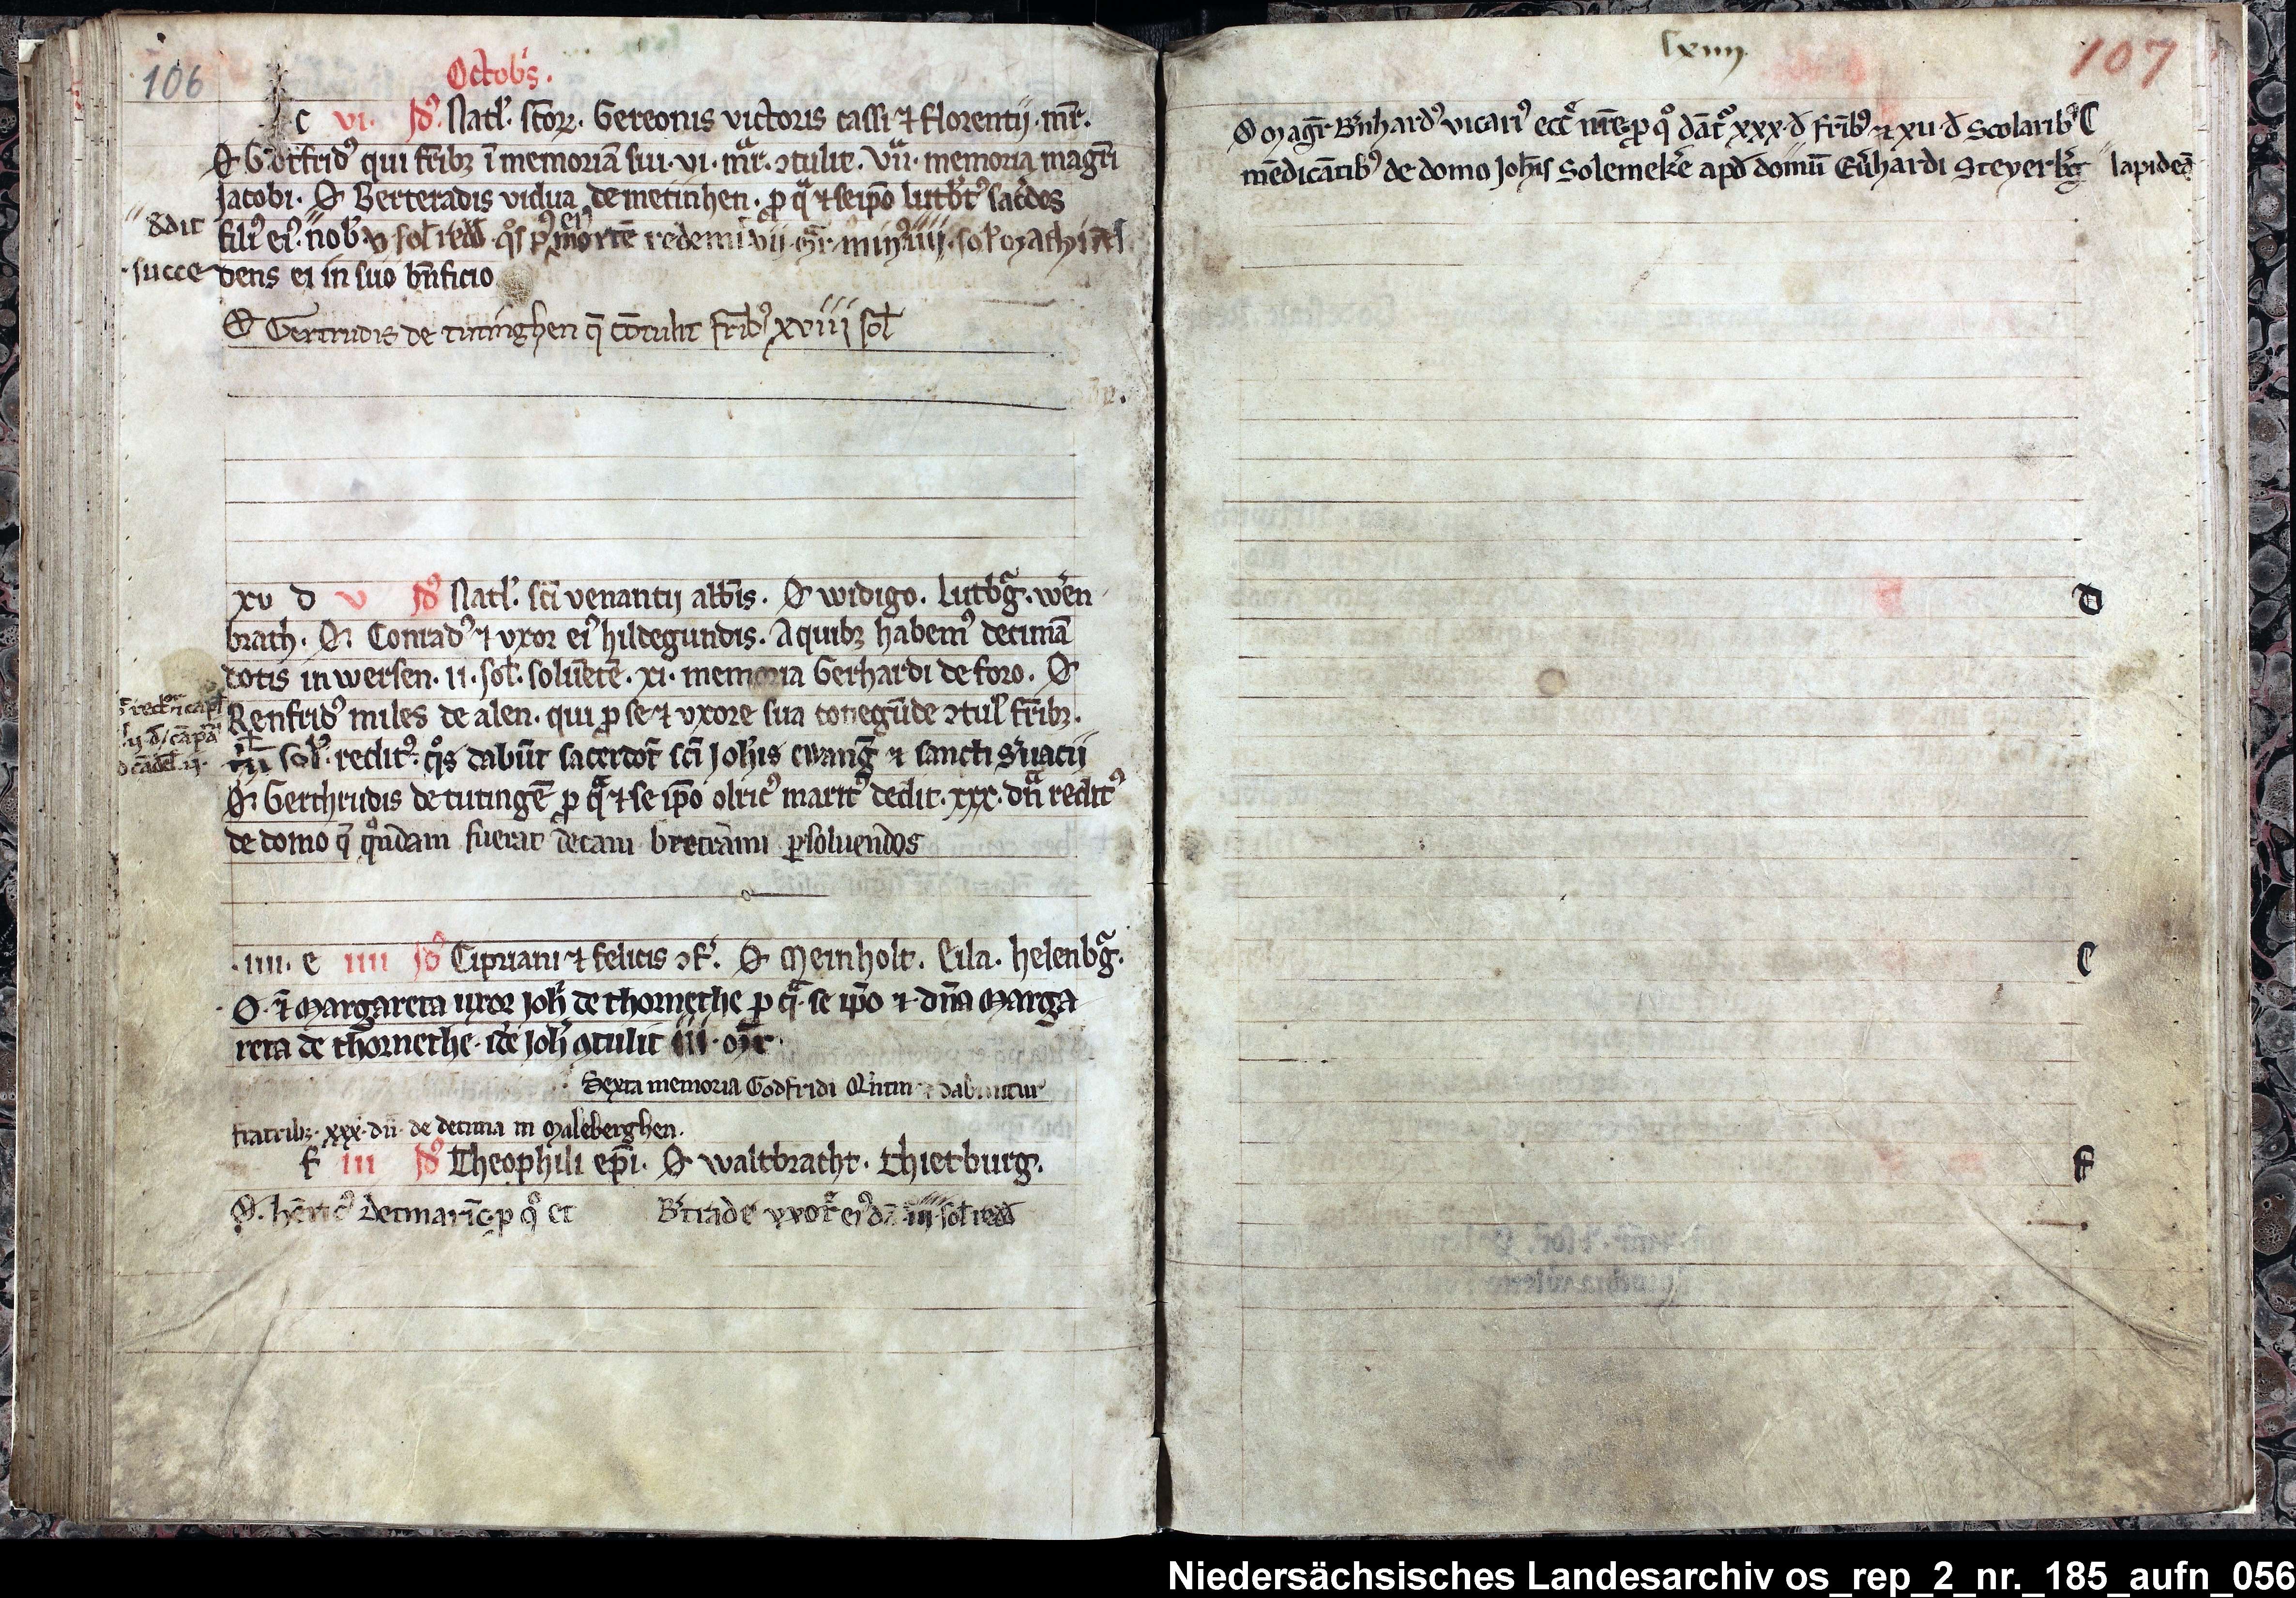 106
Octobꝭs.
c vi. Idꝰ. Natl. scoꝝ. Gereonis victoris cassi ⁊ florentij. mr̄.
O Gotfridꝰ qui fr̄ibꝫ ī memoriā sui. vi. mr̄. ꝯtulit. vii. memoria magr̄i
Jacobi. O Berteradis vidua de metinhen. ꝓ qͣ ⁊ seip̄o lutb̄tꝰ sac̄dos
filiꝰ eiꝰ. dedit nob̄. v sol redd. q̊s pꝰ eiꝰ mortē redemi vii. mr̄. minꝰ iiij. sol
succedens ei in suo bn̄ficio
O Gertrudis de tutinghen q̄ cōtulit fr̄ibꝰ xviiij sol
xv d v Idꝰ Natl. sc̄i venantij abb̄is. O widigo. Lutbḡ. wen
brath. O Conradꝰ ⁊ vxor eiꝰ hildegundis. A quibꝫ habemꝰ decimā
dotis in wersen. ii. sol. soluētē. xi. memoria Gerhardi de foro. O
Renfridꝰ miles de alen. qui ꝓ se ⁊ vxore sua conegūde ꝯtul fr̄ibꝫ.
sol. reditꝰ. q̊s dabūt sacerdot̄ sc̄i Joh̄is ewanḡ ⁊ sancti s̄uacij
O Gerthrudis de tutingē ꝓ qͣ ⁊ se ip̄o olricꝰ maritꝰ dedit. xxx. dn̄ reditꝰ
de domo q̄ q̊ndam fuerat decani bretrāmi ꝑsoluendos
.iiii. e iiii Idꝰ Cipriani ⁊ felicis ꝯf. O Meinholt. Eila. helenbḡ.
O. ⁊ Margareta uxor Joh̄ de thornethe ꝓ qͣ. se ip̄o ⁊ dn̄a Marga
reta de thornethe. idē Joh̄ ꝯtulit iii. mr̄.
Sexta memoria Godfridi Q̄ntin ⁊ dabuntur
fratribꝫ. xxx. dn̄. de decima in Maleberghen.
f iii Idꝰ Theophili ep̄i. O waltbracht. thietburg.
O. hēricꝰ detmarīc ꝓ q̊ et B̄trade vxor̄ eiꝰ dā iiij sol redd
lxiiii.
107
O Magr̄ B̄nhardꝰ vicariꝰ ecc̄ nr̄e ꝓ q̊ dāt᷒ xxx. d fr̄ibꝰ ⁊ xii. d Scolaribꝰ C
mēdicātibꝰ de domo Joh̄is Solemekē apd domū Eūhardi Steyerb̄g lapideā
D
C
F
Niedersächsisches Landesarchiv os_rep_2_nr._185_aufn_056